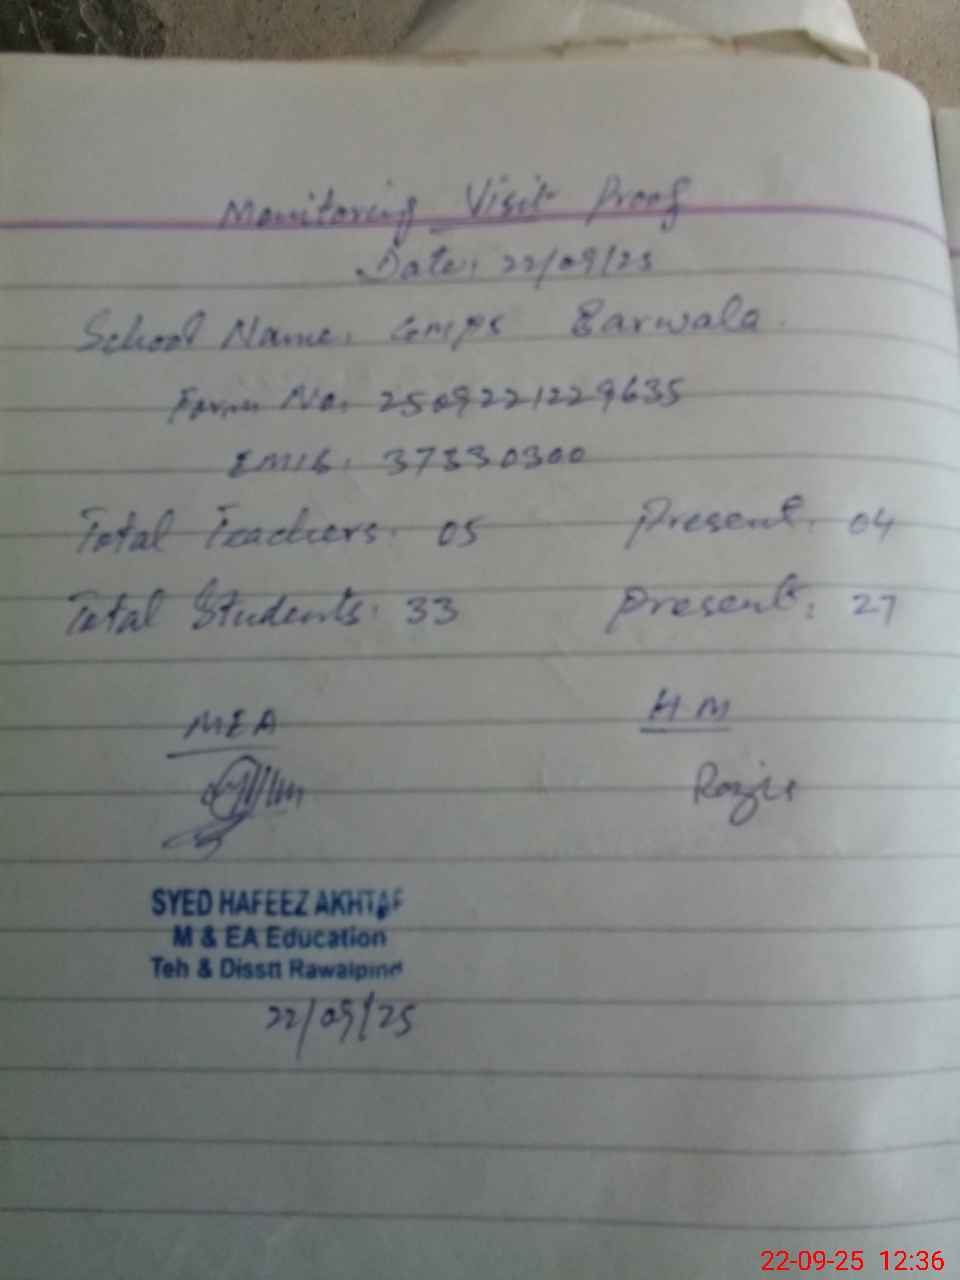 Monitoring Visit Proof
Date: 22/09/25
School Name: GMPS Barwala
Form No. 2509221229635
EMIS: 37330300
Total Teachers: 05 Present: 04
Total Students: 33 Present: 27
MEA HM
SYED HAFEEZ AKHTAR
M & EA Education
Teh & Disstt Rawalpindi
22/09/25
22-09-25 12:36